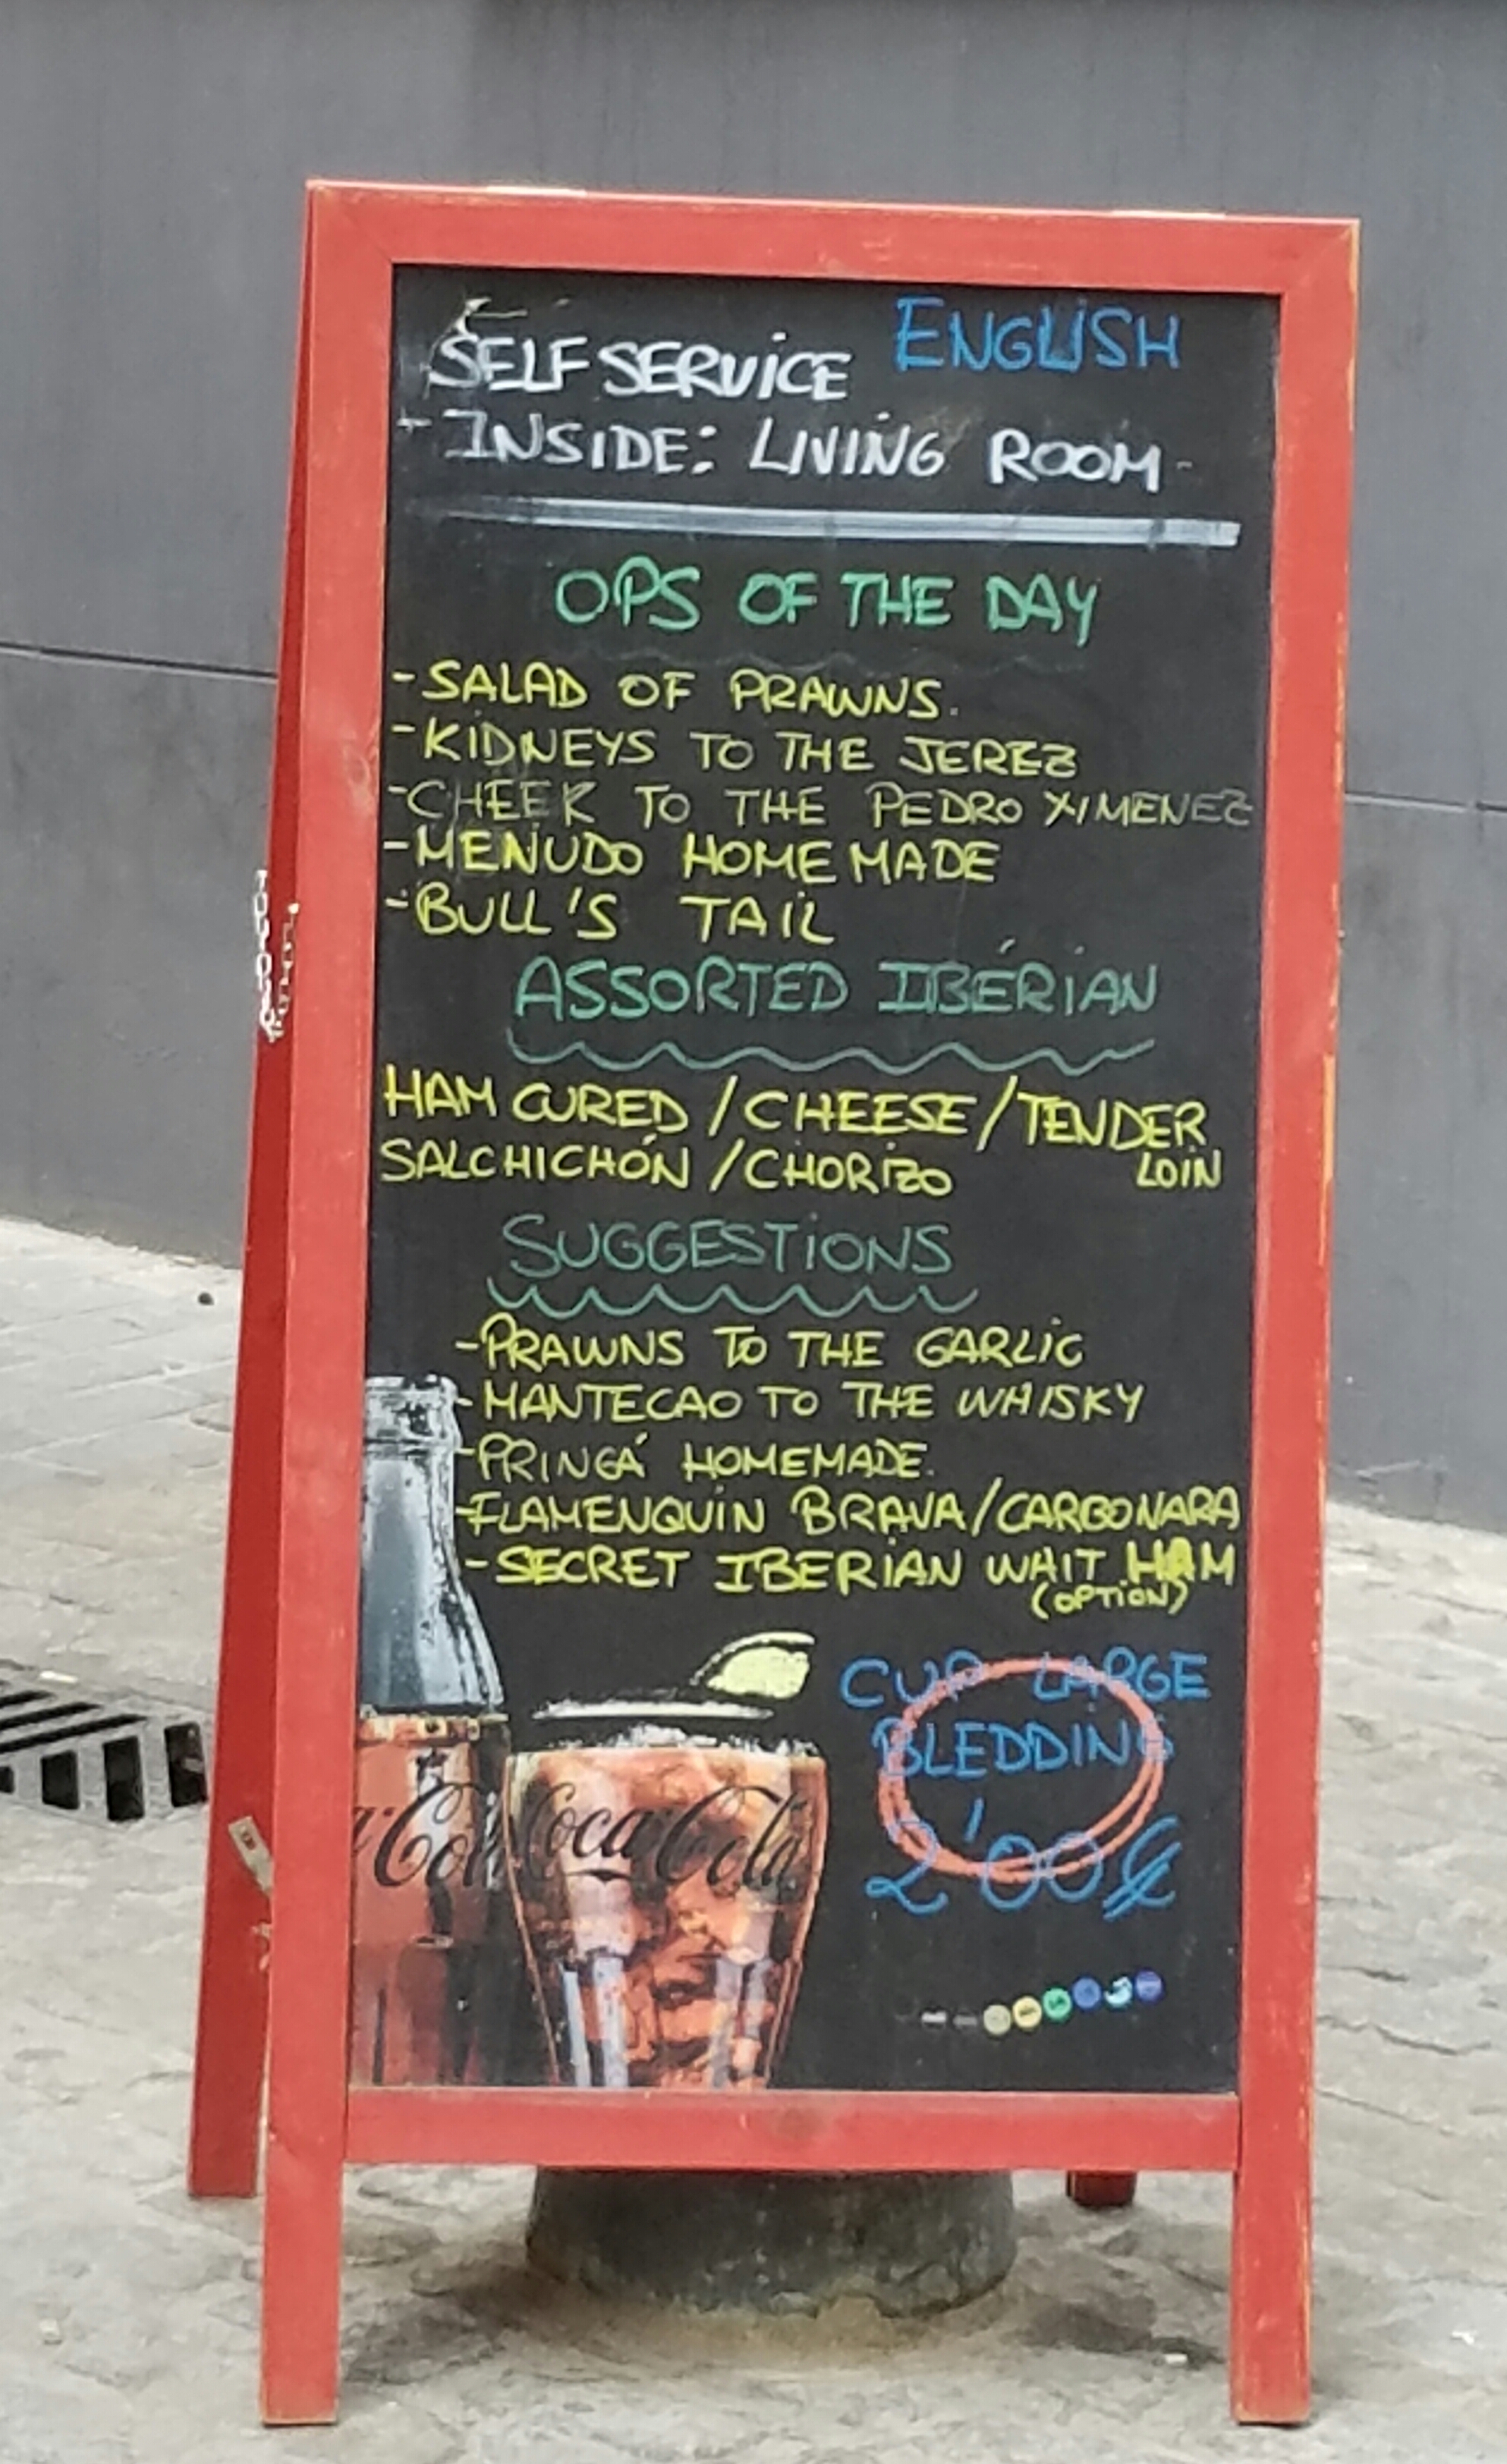 SELF SERVICE ENGLISH
- INSIDE: LIVING ROOM -
OPS OF THE DAY
- SALAD OF PRAWNS.
- KIDNEYS TO THE JEREZ
- CHEEK TO THE PEDRO XIMENEZ
- MENUDO HOME MADE
- BULL'S TAIL
ASSORTED IBÉRIAN
HAM CURED / CHEESE / TENDER
SALCHICHÓN / CHORIZO LOIN
SUGGESTIONS
- PRAWNS TO THE GARLIC
- MANTECAO TO THE WHISKY
- PRINGÁ HOMEMADE.
- FLAMENQUIN BRAVA/CARBONARA
- SECRET IBERIAN WHIT HAM
(OPTION)
CUP LARGE
BLEDDING
2'00€
Coca-Cola